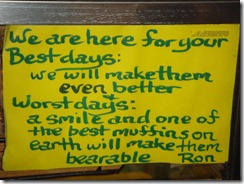 We are here for your
Best days:
we will make them
even better
+
worst days:
a smile and one of
the best muffins on
earth will make them
bearable Ron